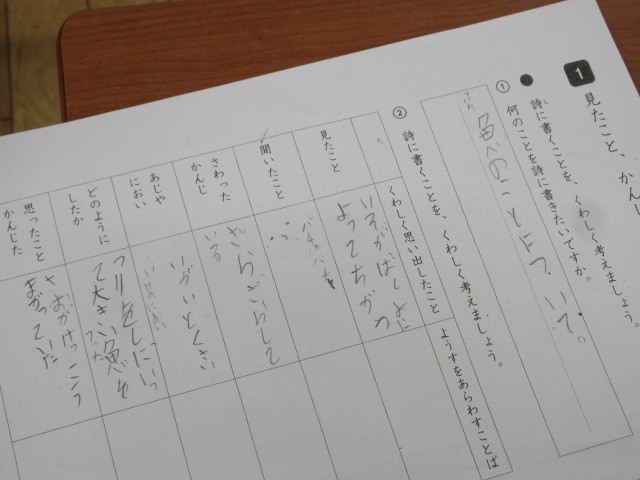 1
見たこと、かんじ
詩に書くことを、くわしく考えましょう。
① 何のことを詩に書きたいですか。
魚べのことについて。
② 詩に書くことを、くわしく考えましょう。
くわしく思い出したこと
ようすをあらわすことば
見たこと
いそがばしょに
よってちがう
聞いたこと
バチャバチャ
さわった
かんじ
ざらざらして
いる
あじや
におい
いがいとくさい
どのように
したか
つりをしにいっ
て大きい魚を
つった
思ったこと
かんじた
さおがけっこう
まがっていた